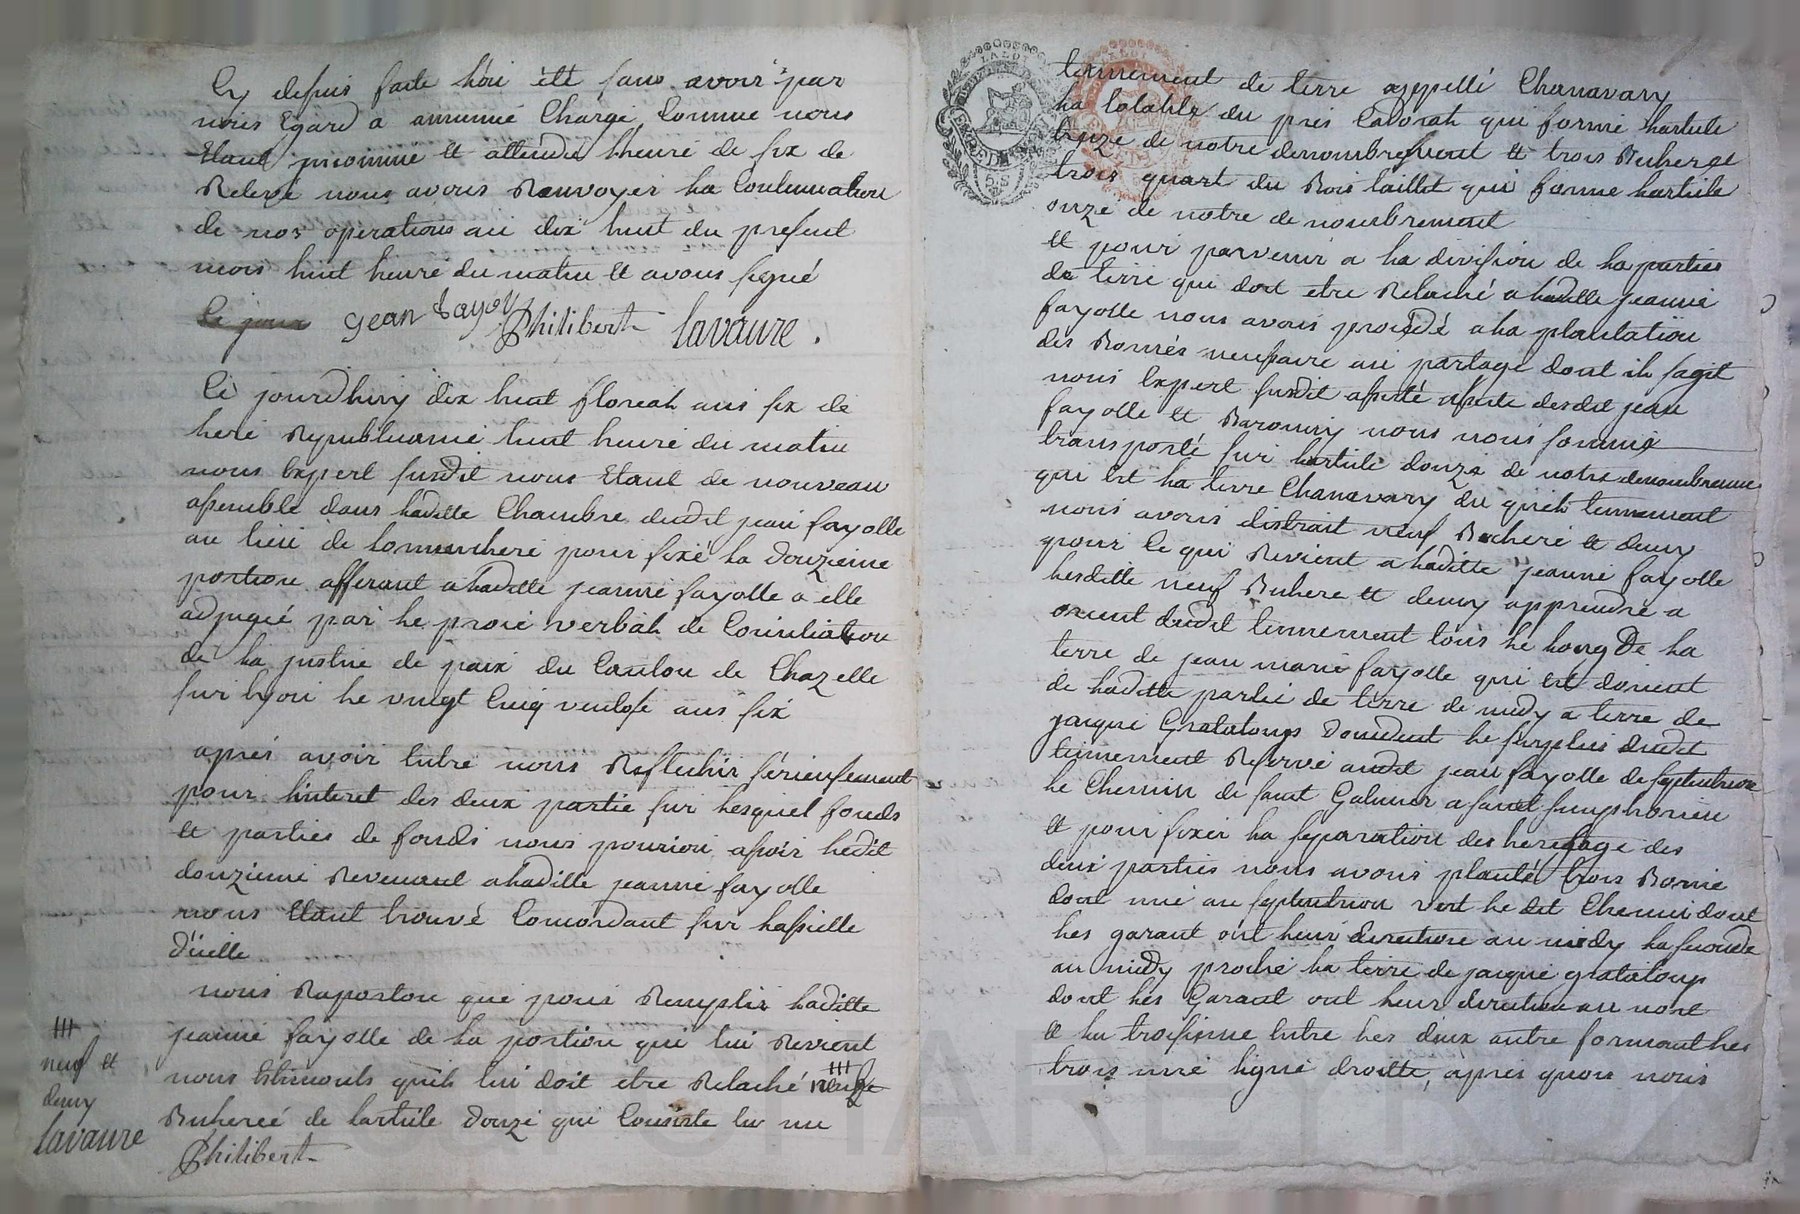 Cy depuis faite hoir été sans avoir par
nous Egard a aucunne Charge Connue nous
Etant inconnue et attendu lheure de six de
Releve nous avons Renvoyer ha Continuation
de nos operations au dix huit du present
mois huit heure du matin et avons signé
Ce jour jean fayolle Philibert lavaure .
Ce jourdhuy dix huit floreah ans six de
here Republicaine huit heure du matin
nous Expert susdit nous Etant de nouveau
assemblé dans haditte Chambre dudit jean fayolle
au lieu de pour fixé ha douzieme
portion afferant a hadditte jeanne fayolle a elle
adjugée par he proié verbah de Conciliation
de ha justice de paix du Canton de Chazelle
sur lyon he vingt Cinq ventose ans six
apres avoir Entre nous Reflechir serieusement
pour hinteret des deux partie sur hesquel fonds
et parties de fonds nous pourion assoir hedit
douzieme Revenant ahaditte jeanne fayolle
nous Etant trouvé Concordant sur hassiette
d'icelle
nous Raporton que pour Remplir haditte
jeanne fayolle de ha portion qui lui Revient
nous Estimons queh lui doit etre Relaché neuf
Bicheree de hartiile douze qui Consiste En un
neuf et
demy
lavaure
Philibert
tennement de terre appellé Chanavary
ha totalité du prés Cadorah qui forme hartiile
de notre denombrement et trois Bicheree
trois quart du Bois taillet qui forme hartiile
onze de notre denombrement
et pour parvenir a ha division de ha parties
de terre qui doit etre Relaché a haditte jeanne
fayolle nous avons procedé a ha plantation
des Bornes necessaire au partage dont ih sagit
nous Expert susdit assisté desdit jean
fayolle et nous nous somme
transporté sur hartiile douze de notre denombremens
qui est ha terre Chanavary du queh tennement
nous avons distrait neuf Bichere et demy
pour Ce qui Revient a haditte jeanne fayolle
hesditte neuf Bichere et demy apprendre a
orient dudit tennement tous he hong De ha
terre de jean marie fayolle qui est dorient
de haditte partie de terre de midy a terre de
jacque Grataloup doccident he surplus dudit
tennement Reservé audit jean fayolle de septentrion
he Chemin de saint Galmier a saint simphorien
et pour fixer ha separation des heritage des
deux parties nous avons planté trois Borne
dont une au septentrion vert he dit Chemin dont
hes garant ont heur direction au midy ha seconde
au midy proche ha terre de jacque grataloup
dont hes Garant ont heur direction au nort
et ha troisieme Entre hes deux autre formant hes
trois une ligne droitte, apres quoi nous